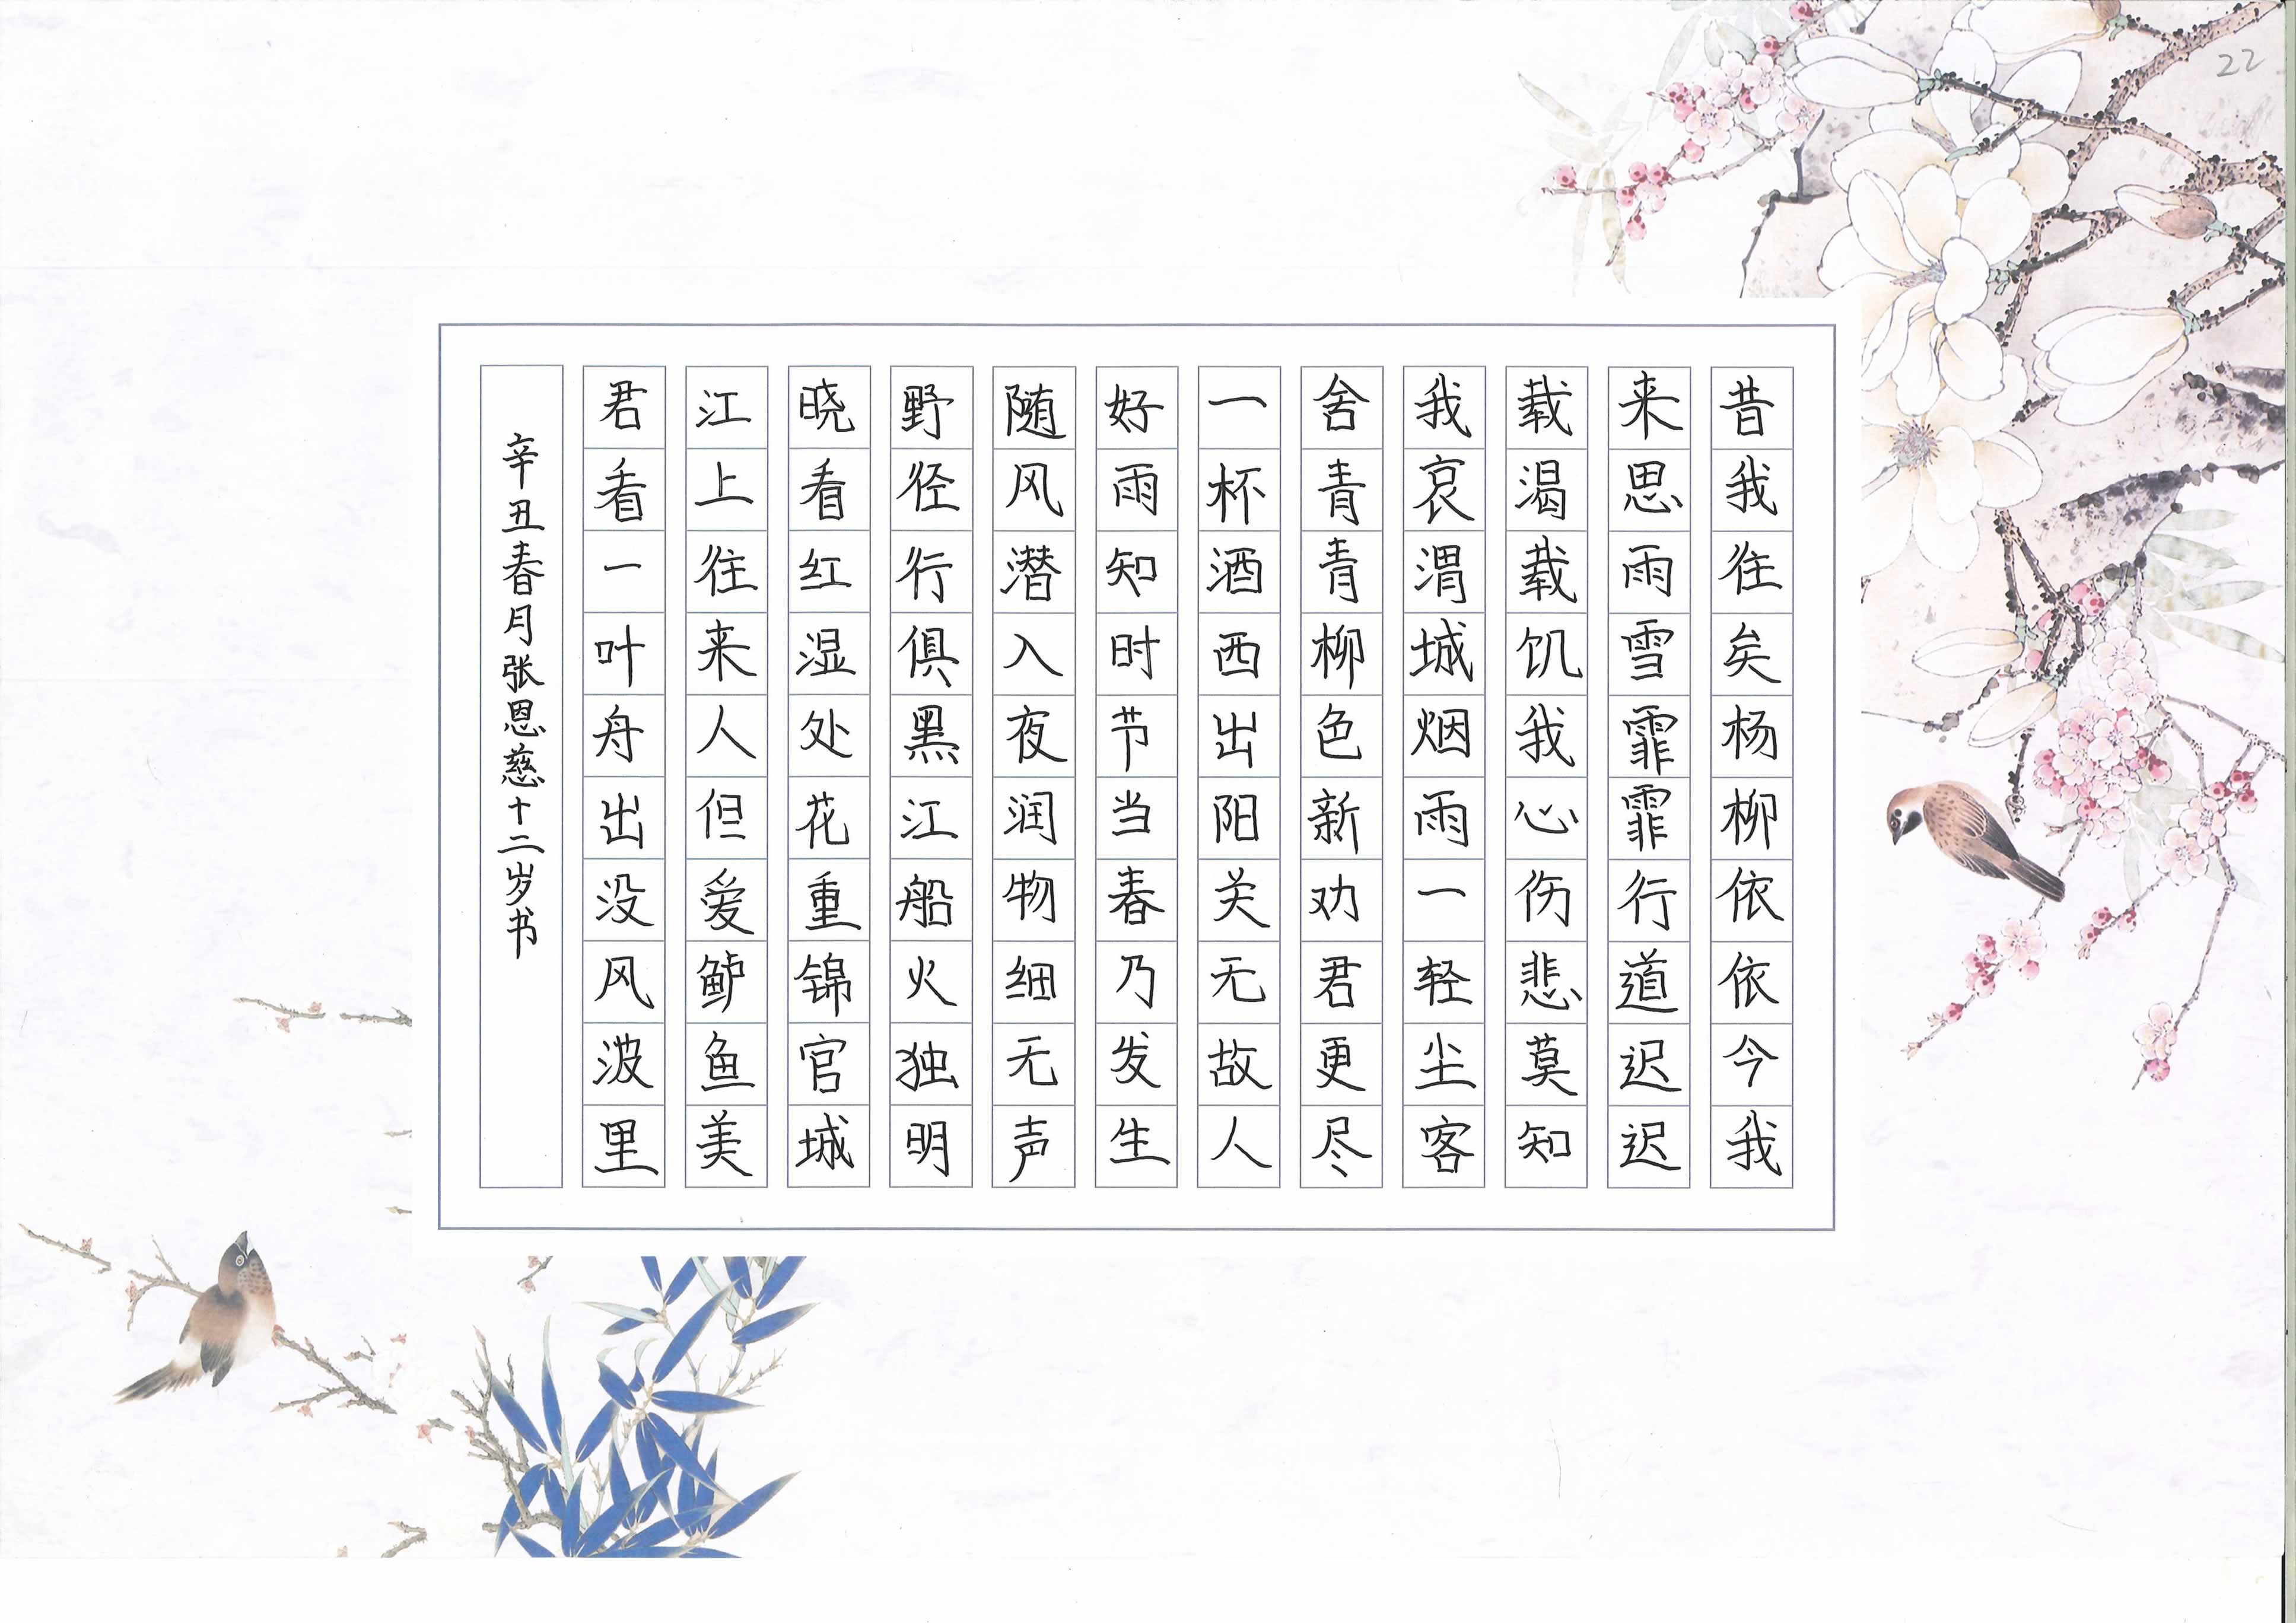 昔我往矣杨柳依依今我
来思雨雪霏霏行道迟迟
载渴载饥我心伤悲莫知
我哀渭城烟雨一轻尘客
舍青青柳色新劝君更尽
一杯酒西出阳关无故人
好雨知时节当春乃发生
随风潜入夜润物细无声
野径行俱黑江船火独明
晓看红湿处花重锦官城
江上往来人但爱鲈鱼美
君看一叶舟出没风波里
辛丑春月张恩慈十二岁书
22